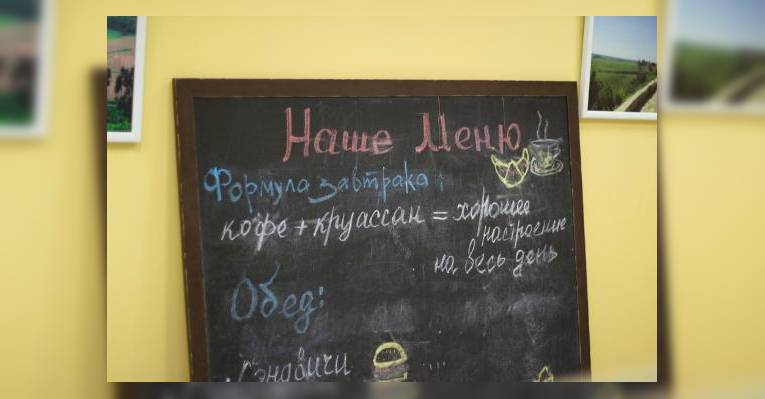 Наше Меню
Формула завтрака:
кофе + круассан = хорошее
настроение
на весь день
Обед:
Сэндвичи